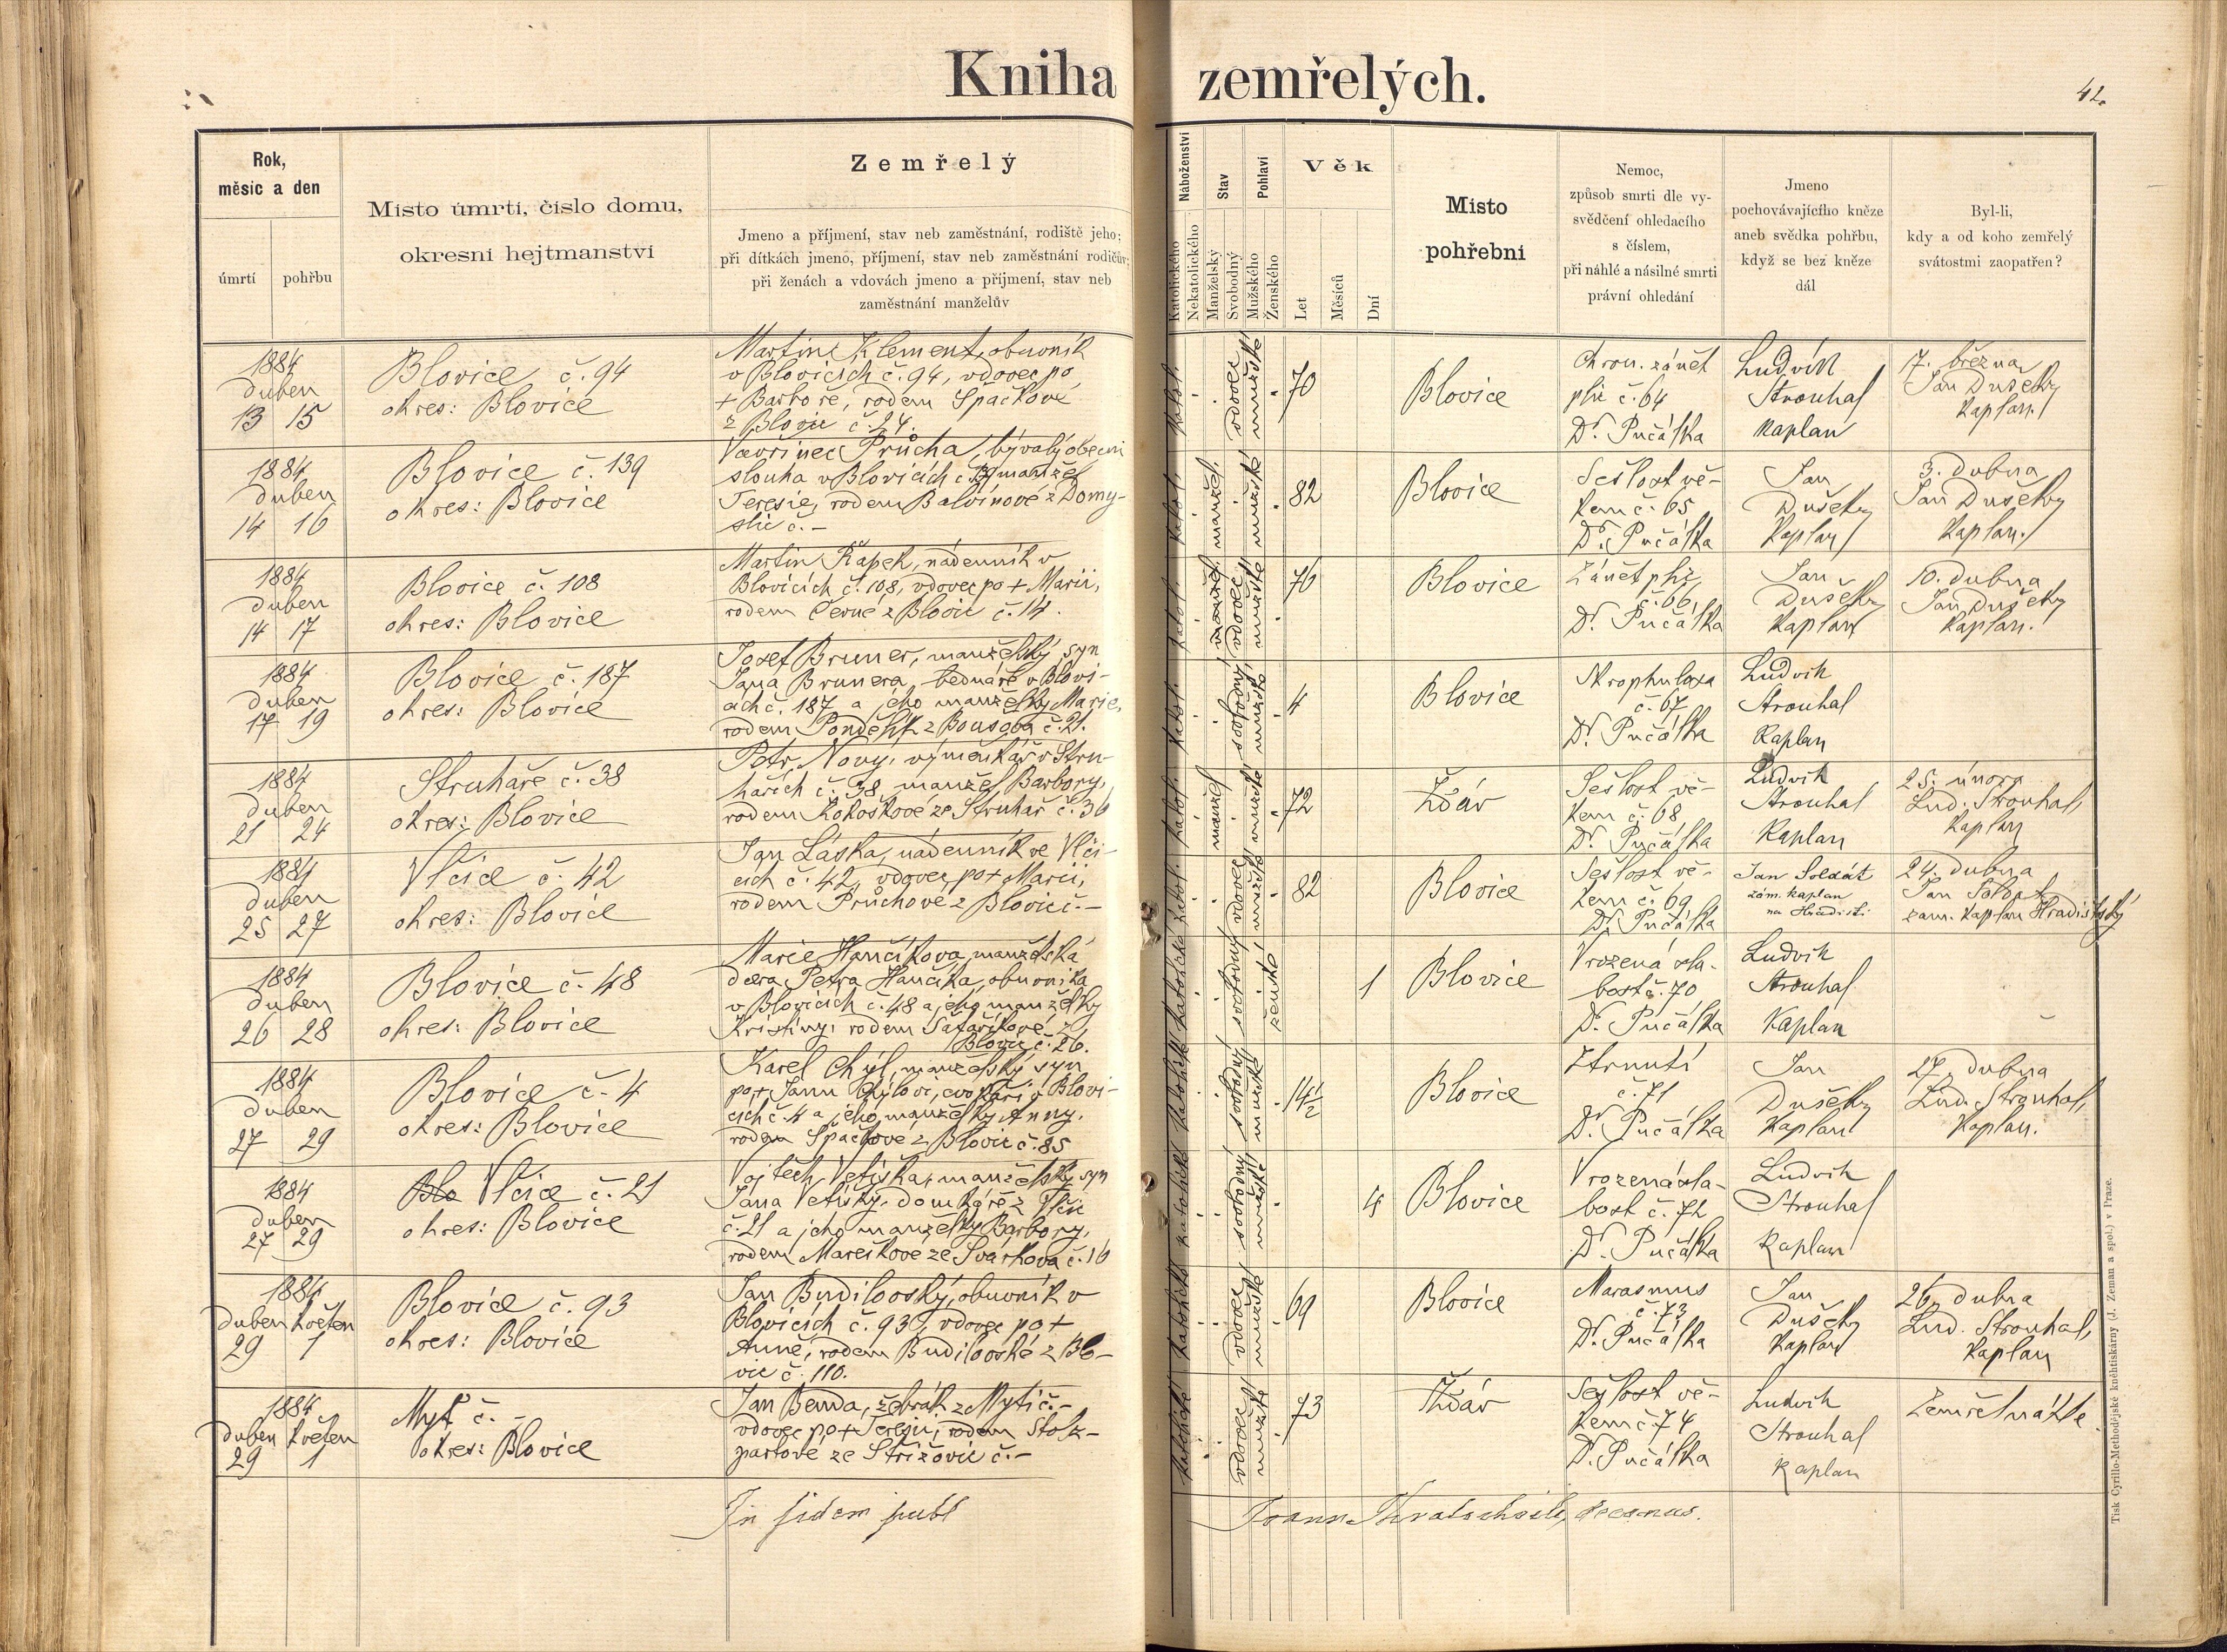 Kniha zemřelých.
42.
Rok,
měsíc a den
úmrtí pohřbu
Místo úmrtí, číslo domu,
okresní hejtmanství
Zemřelý
Jmeno a příjmení, stav neb zaměstnání, rodiště jeho;
při dítkách jmeno, příjmení, stav neb zaměstnání rodičův;
při ženách a vdovách jmeno a příjmení, stav neb
zaměstnání manželův
Náboženství
Katolického
Nekatolického
Stav
Manželský
Svobodný
Pohlaví
Mužského
Ženského
Věk
Let
Měsíců
Dní
Místo
pohřební
Nemoc,
způsob smrti dle vy-
svědčení ohledacího
s číslem,
při náhlé a násilné smrti
právní ohledání
Jmeno
pochovávajícího kněze
aneb svědka pohřbu,
když se bez kněze
dál
Byl-li,
kdy a od koho zemřelý
svátostmi zaopatřen?
1884
duben
13 15
Blovice č. 94
okres: Blovice
Martin Klement, obuvník
v Blovicích č. 94, vdovec po
+ Barboře, rodem Špačkové
z Blovic č. 24.
katol.
vdovec
mužské
70
Blovice
Chron. zánět
plic č. 64
Dr. Pučálka
Ludvík
Strouhal
Kaplan
17. března
Jan Dušek
Kaplan.
1884
duben
14 16
Blovice č. 139
okres: Blovice
Vavřinec Průcha, bývalý obecní
sluha v Blovicích č. 139 manžel
Teresie, rodem Balvínové z Domy-
slic č. –
katol.
manžel.
mužské
82
Blovice
Sešlost vě-
kem č. 65
Dr. Pučálka
Jan
Dušek
Kaplan
3. dubna
Jan Dušek
Kaplan.
1884
duben
14 17
Blovice č. 108
okres: Blovice
Martin Řápek, nádenník v
Blovicích č. 108, vdovec po + Marii,
rodem Černé z Blovic č. 14.
katol.
manžel.
vdovec
mužské
76
Blovice
Zánět plic
č. 66
Dr. Pučálka
Jan
Dušek
Kaplan
10. dubna
Jan Dušek
Kaplan.
1884
duben
17 19
Blovice č. 187
okres: Blovice
Josef Bruner, manželský syn
Jana Brunera, bednáře v Blovi-
cích č. 187 a jeho manželky Marie,
rodem Pondělík z Bousova č. 21.
katol.
svobodný
mužské
4
Blovice
Skrophulosa
č. 67
Dr. Pučálka
Ludvík
Strouhal
Kaplan
1884
duben
21 24
Struhaře č. 38
okres: Blovice
Petr Nový, výměnkář v Stru-
hařích č. 38, manžel Barbory,
rodem Kokoškové ze Struhař č. 36
katol.
manžel
mužské
72
Ždár
Sešlost vě-
kem č. 68
Dr. Pučálka
Ludvík
Strouhal
Kaplan
25. února
Lud. Strouhal,
Kaplan
1884
duben
25 27
Vlčice č. 42
okres: Blovice
Jan Láska, nádenník ve Vlči-
cích č. 42, vdovec po + Marii,
rodem Průchové z Blovic č. –
katol.
vdovec
mužské
82
Blovice
Sešlost vě-
kem č. 69
Dr. Pučálka
Jan Soldát
zám. kaplan
na Hradišti
24. dubna
Jan Soldat
zam. kaplan Hradištský
1884
duben
26 28
Blovice č. 48
okres: Blovice
Marie Hančíkova, manželská
dcera Petra Hančíka, obuvníka
v Blovicích č. 48 a jeho manželky
Kristiny, rodem Šafaříkové z
Blovic č. 26.
katolické
svobodný
ženské
1
Blovice
Vrozená sla-
bost č. 70
Dr. Pučálka
Ludvík
Strouhal
Kaplan
1884
duben
27 29
Blovice č. 4
okres: Blovice
Karel Chýl, manželský syn
po + Janu Chýlovi, v Blovi-
cích č. 4 a jeho manželky Anny,
rodem Špačkové z Blovic č. 85
katolické
svobodný
mužské
14½
Blovice
Ztrnutí
č. 71
Dr. Pučálka
Jan
Dušek
Kaplan
27. dubna
Lud. Strouhal,
Kaplan.
1884
duben
27 29
Blo Vlčice č. 21
okres: Blovice
Vojtěch Vetiška, manželský syn
Jana Vetišky, domkáře z Vlčic
č. 21 a jeho manželky Barbory,
rodem Mareškové ze Svárkova č. 16
katolické
svobodný
mužské
4
Blovice
Vrozená sla-
bost č. 72
Dr. Pučálka
Ludvík
Strouhal
Kaplan
1884
duben květen
29 1
Blovice č. 93
okres: Blovice
Jan Budilovský, obuvník v
Blovicích č. 93, vdovec po +
Anně, rodem Budilovské z Blo-
vic č. 110.
katolické
vdovec
mužské
69
Blovice
Marasmus
č. 73
Dr. Pučálka
Jan
Dušek
Kaplan
26. dubna
Lud. Strouhal,
Kaplan
1884
duben květen
29 1
Myť č. –
okres: Blovice
Jan Benda, žebrák z Mytí č. –
vdovec po + Teresii, rodem Stolz-
partové ze Střížovic č. –
katolické
vdovec
mužské
73
Ždár
Sešlost vě-
kem č. 74
Dr. Pučálka
Ludvík
Strouhal
Kaplan
Zemřel náhle.
In fidem publ
Joann decanus.
Tisk Cyrillo-Methodějské knihtiskárny (J. Zeman a spol.) v Praze.